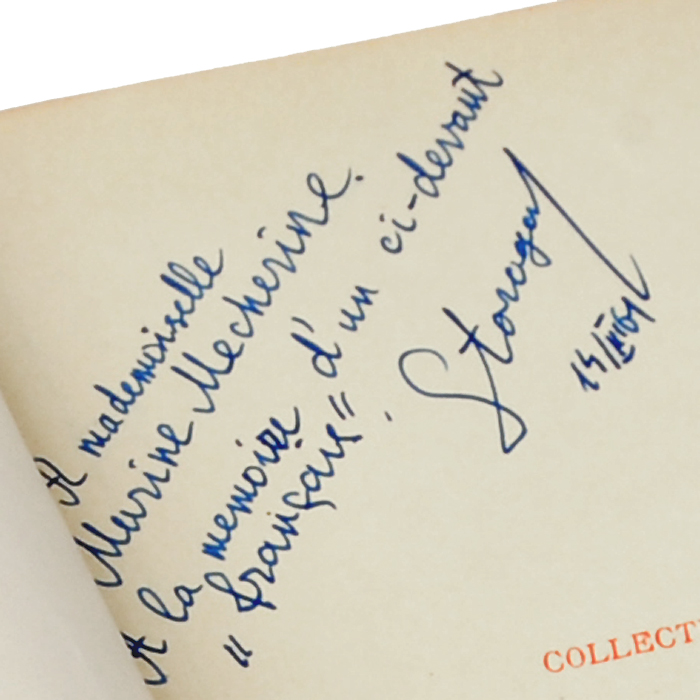 A mademoiselle
Marine Mecherine.
A la memoire d'un ci-devant
"français".
COLLECT